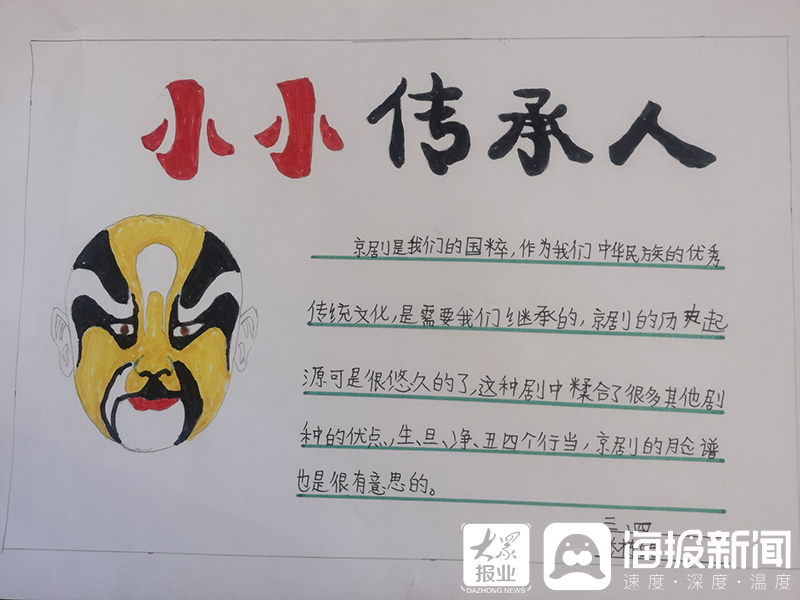 小小传承人
京剧是我们的国粹，作为我们中华民族的优秀
传统文化，是需要我们继承的，京剧的历史起
源可是很悠久的了，这种剧中糅合了很多其他剧
种的优点、生、旦、净、丑四个行当，京剧的脸谱
也是很有意思的。
三、四
大众
报业
DAZHONG NEWS
海报新闻
速度·深度·温度